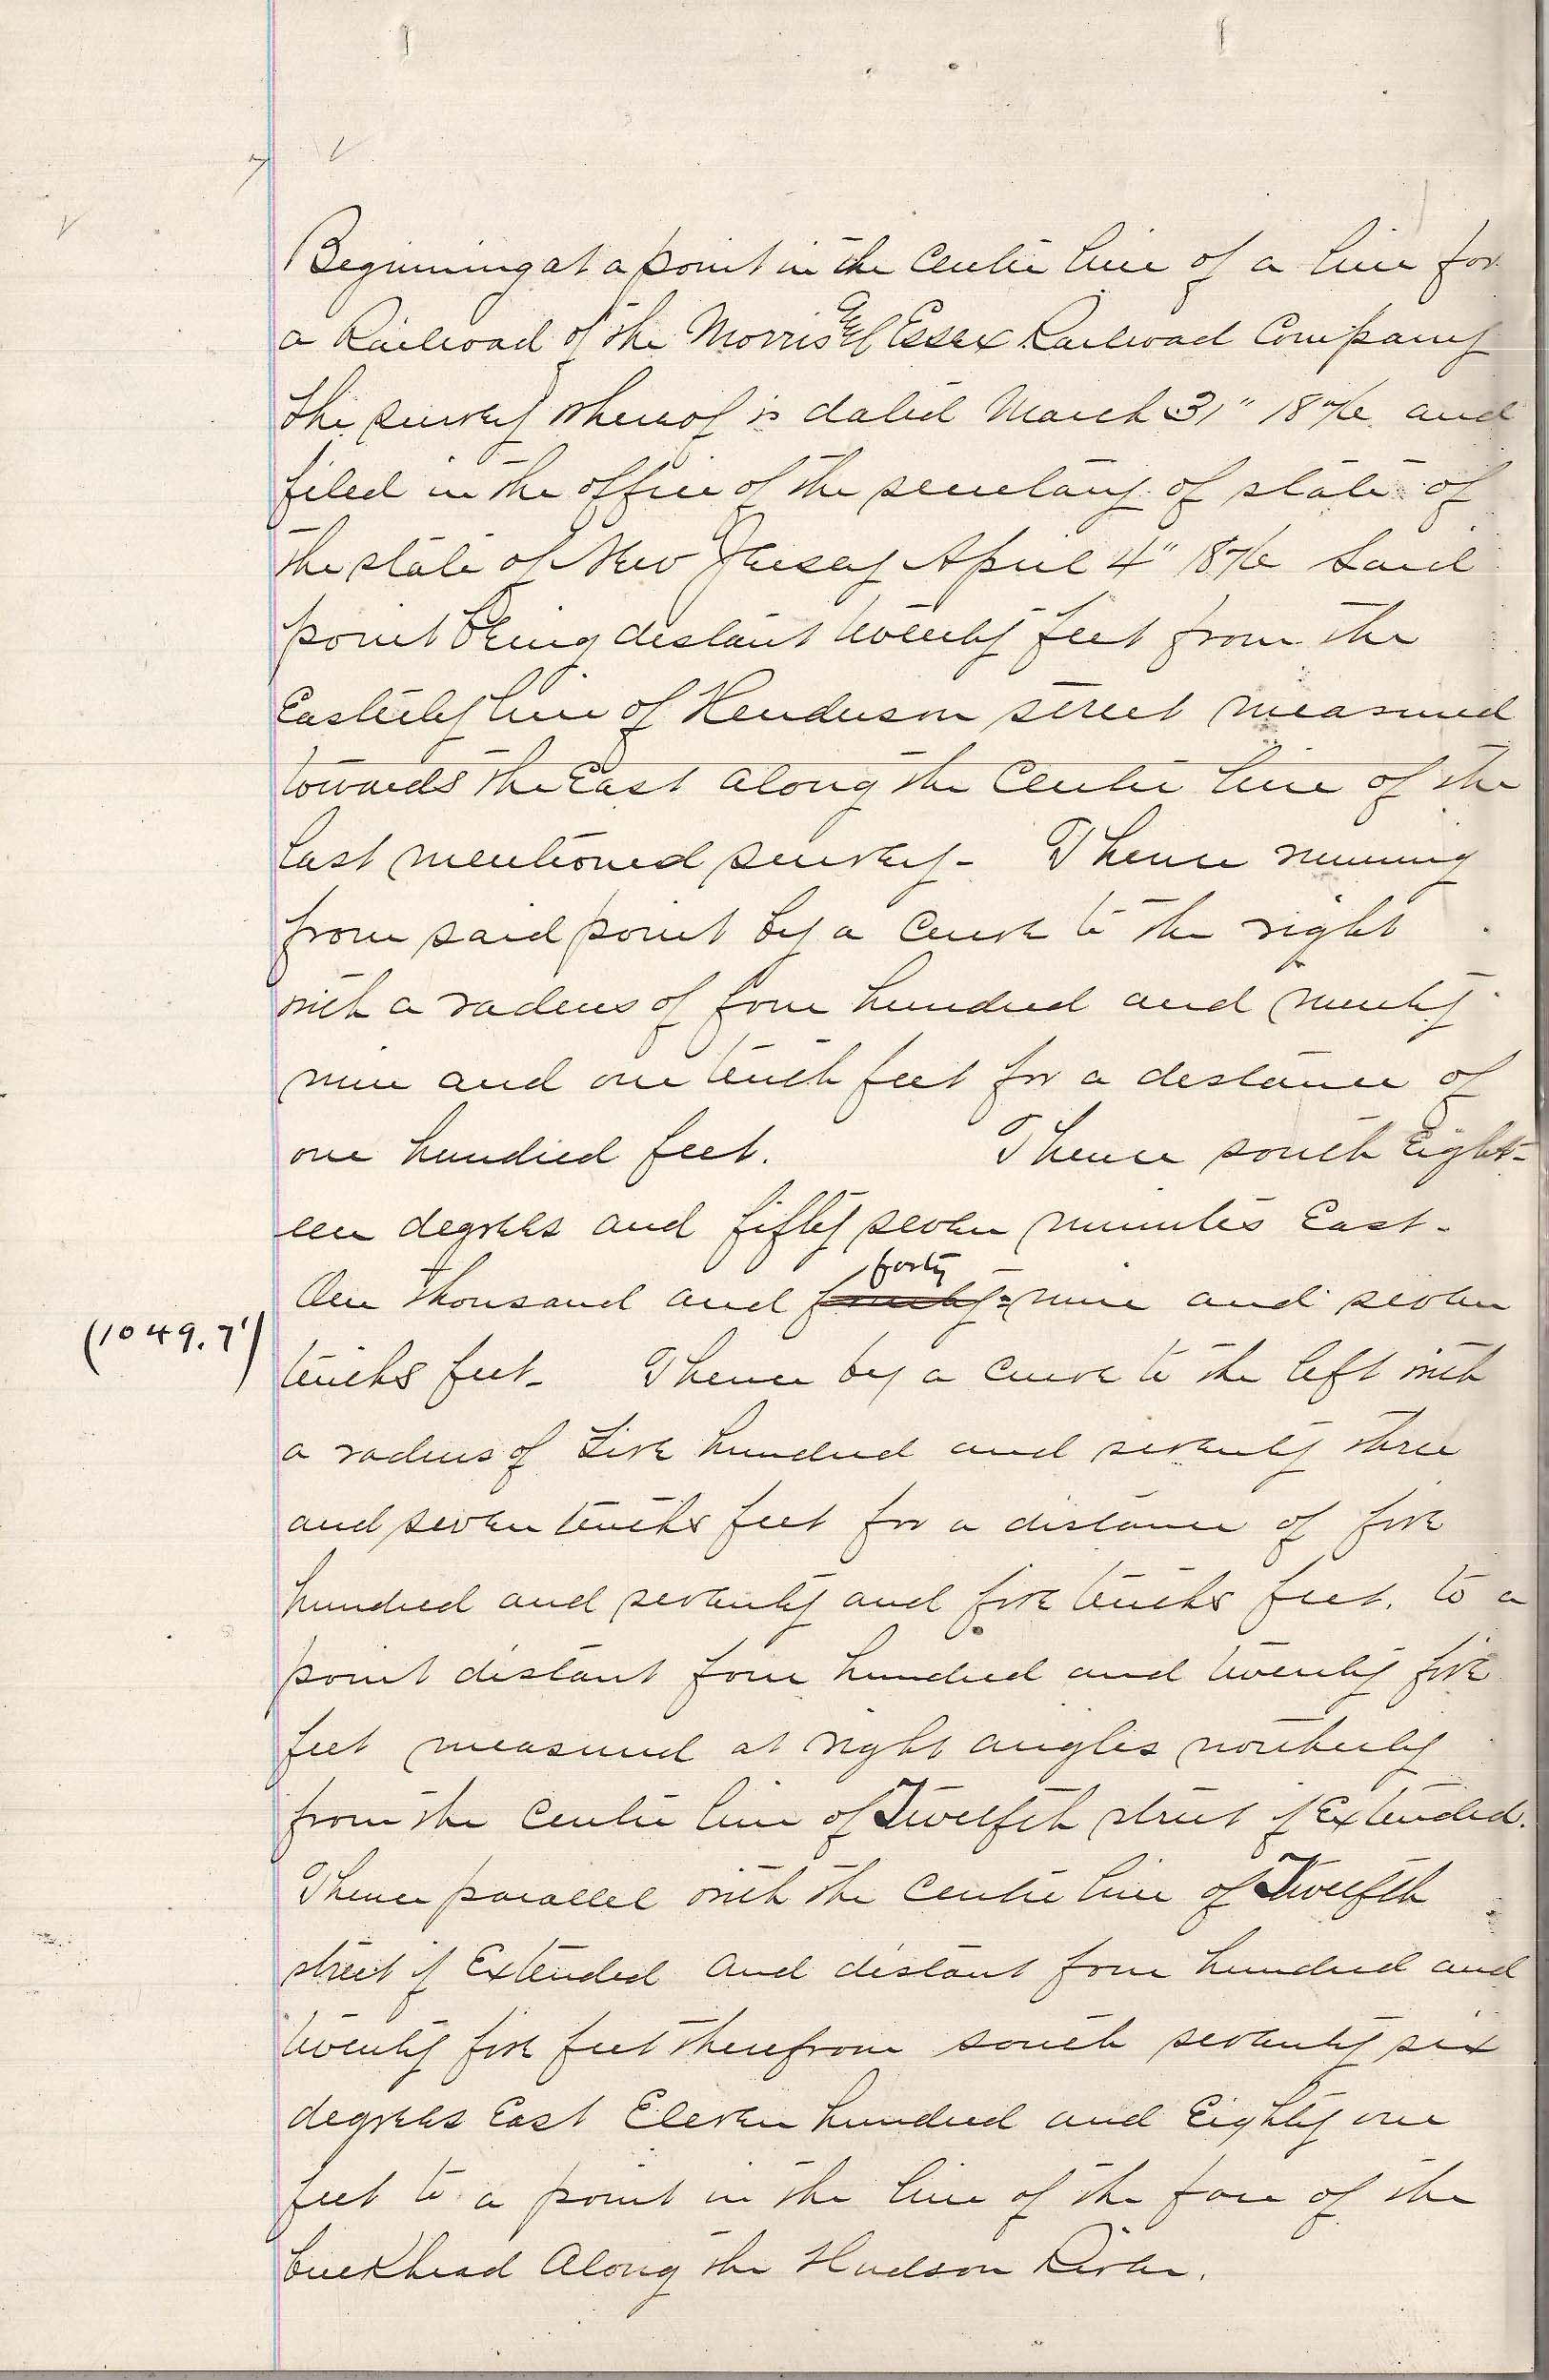 Beginning at a point in the Centre line of a line for
a Railroad of the Morris & Essex Railroad Company
the survey whereof is dated March 31" 1876 and
filed in the office of the secretary of state of
the state of New Jersey April 4" 1876 Said
point being distant twenty feet from the
Easterly line of Henderson street measured
towards the East along the Centre line of the
last mentioned survey - Thence running
from said point by a Curve to the right
with a radius of four hundred and ninety
nine and one tenth feet for a distance of
one hundred feet. Thence south Eight-
een degrees and fifty seven minutes East -
forty
One thousand and nine and seven
(1049.7')
tenths feet - Thence by a curve to the left with
a radius of Five hundred and seventy three
and seven tenths feet for a distance of five
hundred and seventy and five tenths feet. to a
point distant four hundred and twenty five
feet measured at right angles northerly
from the Centre line of Twelfth street if Extended.
Thence parallel with the Centre line of Twelfth
street if Extended and distant four hundred and
twenty five feet therefrom south seventy six
degrees East Eleven hundred and Eighty one
feet to a point in the line of the face of the
bulkhead Along the Hudson River.